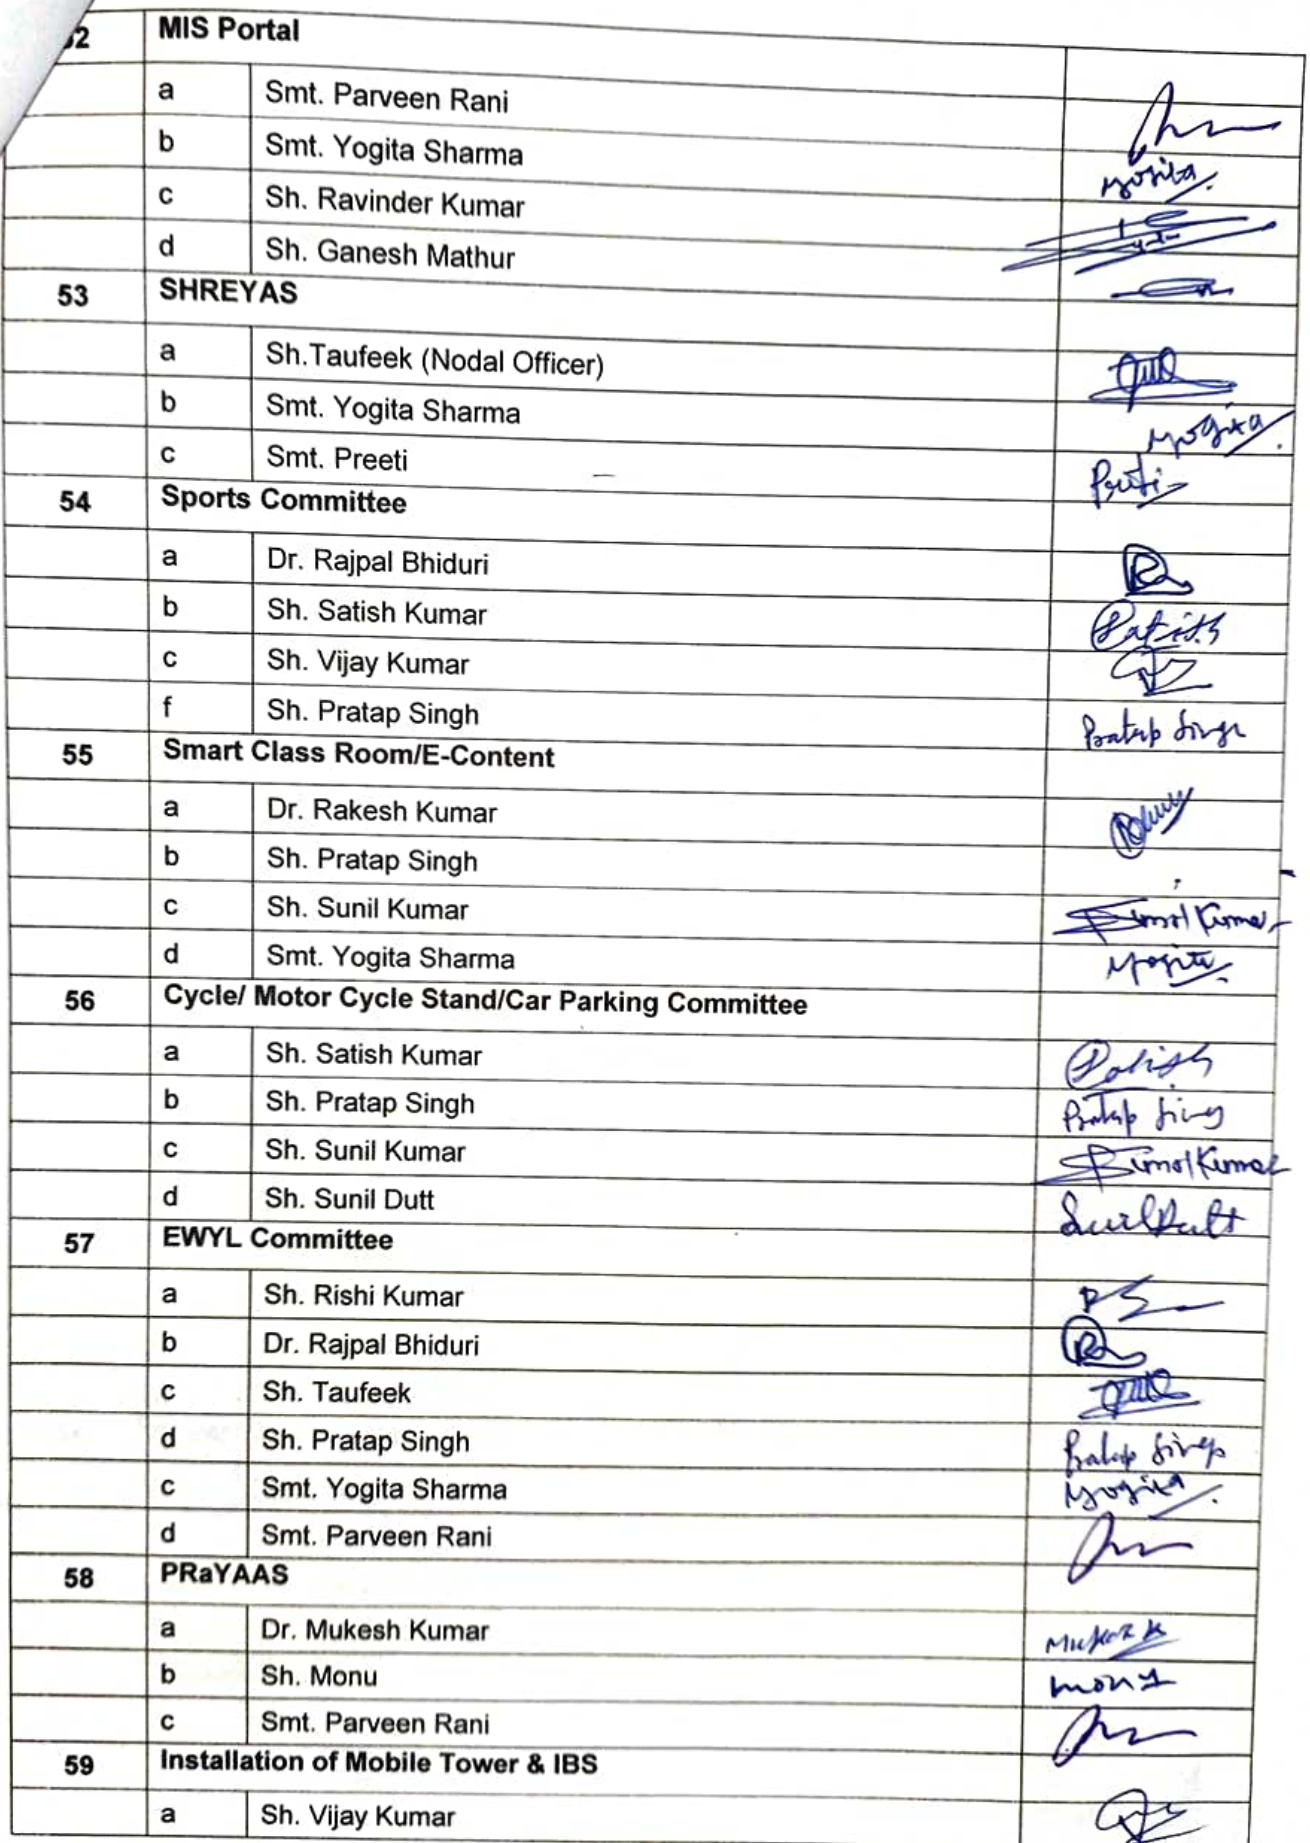 2 MIS Portal
a Smt. Parveen Rani
b Smt. Yogita Sharma Yogita
c Sh. Ravinder Kumar
d Sh. Ganesh Mathur
53 SHREYAS
a Sh.Taufeek (Nodal Officer)
b Smt. Yogita Sharma Yogita
c Smt. Preeti Preeti
54 Sports Committee
a Dr. Rajpal Bhiduri
b Sh. Satish Kumar Satish
c Sh. Vijay Kumar
f Sh. Pratap Singh Pratap Singh
55 Smart Class Room/E-Content
a Dr. Rakesh Kumar
b Sh. Pratap Singh
c Sh. Sunil Kumar Kumar
d Smt. Yogita Sharma Yogita
56 Cycle/ Motor Cycle Stand/Car Parking Committee
a Sh. Satish Kumar Satish
b Sh. Pratap Singh Pratap Singh
c Sh. Sunil Kumar Kumar
d Sh. Sunil Dutt Sunil Dutt
57 EWYL Committee
a Sh. Rishi Kumar
b Dr. Rajpal Bhiduri
c Sh. Taufeek
d Sh. Pratap Singh Pratap Singh
c Smt. Yogita Sharma Yogita
d Smt. Parveen Rani
58 PRaYAAS
a Dr. Mukesh Kumar
b Sh. Monu Monu
c Smt. Parveen Rani
59 Installation of Mobile Tower & IBS
a Sh. Vijay Kumar